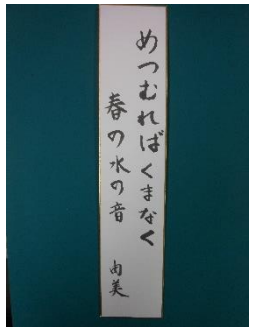 めつむればくまなく
春の水の音
由美